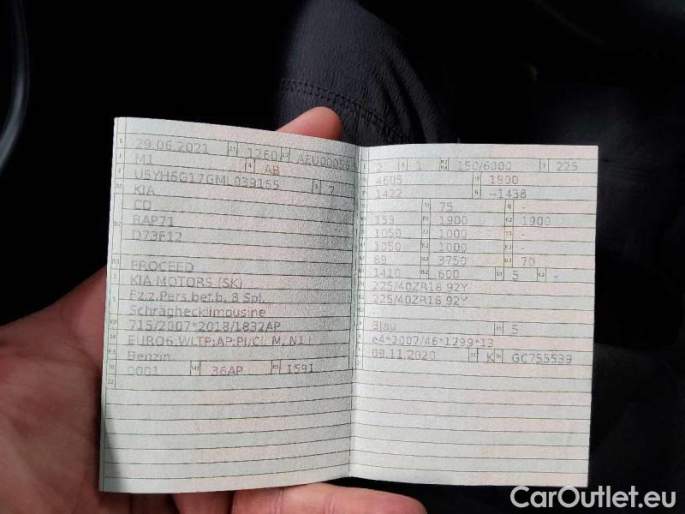 29.06.2021 1260 AEU00056
M1 AB
U5YH6G17GML039155 2
KIA
CD
BAP71
D73F12
-
PROCEED
KIA MOTORS (SK)
Fz.z.Pers.bef.b. 8 Spl.
Schräghecklimousine
715/2007*2018/1832AP
EURO6;WLTP;AP;PI/CI; M, N1 I
Benzin
0001 36AP 1591
2 1 150/6000 225
4605 1800
1422 -1438
- 75 -
1900 1900
1050 1000 -
1050 1000 -
89 3750 70
1410 600 5 -
225/40ZR18 92Y
225/40ZR18 92Y
-
Blau 5
e4*2007/46*1299*13
09.11.2020 K GC755539
CarOutlet.eu